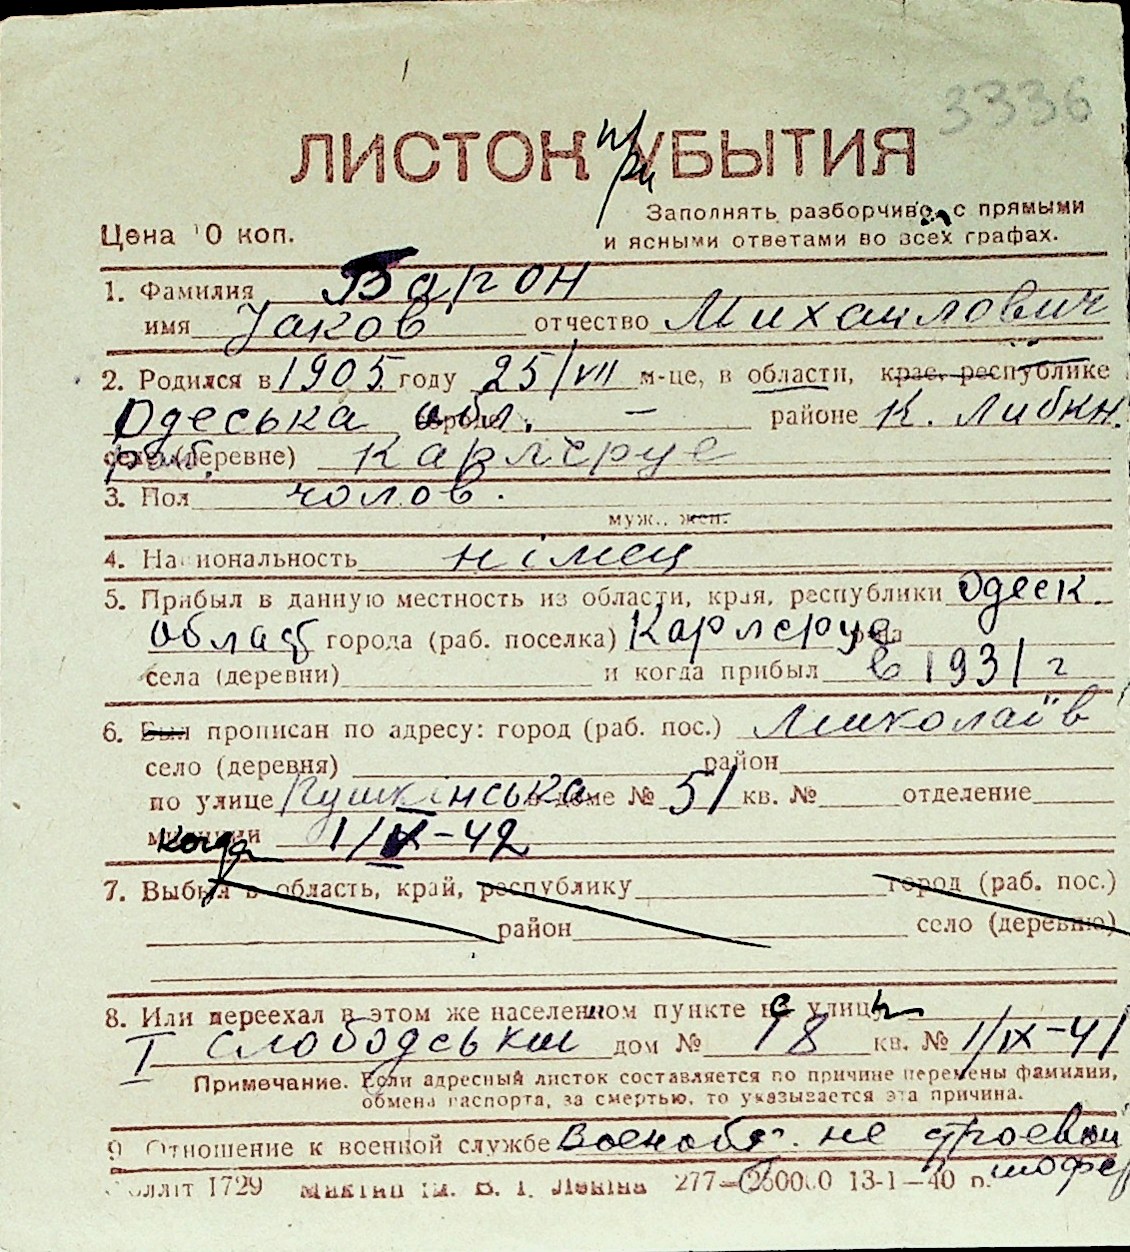 3336
ЛИСТОК при УБЫТИЯ
Заполнять разборчиво, с прямыми
Цена 10 коп.
и ясными ответами во всех графах.
1. Фамилия Барон
имя Јаков отчество Михаилович
2. Родился в 1905 году 25/VII м-це, в области, крае, республике
Одеська обл. городе — районе К. Либкн.
райб. селе (деревне) Карлсруе
3. Пол чолов.
муж., жен.
4. Национальность німец
5. Прибыл в данную местность из области, края, республики Одеск.
област города (раб. поселка) Карлсруе
села (деревни) и когда прибыл в 1931 г
6. Был прописан по адресу: город (раб. пос.) Миколаїв
село (деревня) район
по улице Пушкінська в доме № 51 кв. № отделение
милиции когда 1/IX-42
7. Выбыл в область, край, республику город (раб. пос.)
район село (деревню)
8. Или переехал в этом же населенном пункте с улицы
I Слободськии дом № 18 кв. № 1/IX-41
Примечание. Если адресный листок составляется по причине перемены фамилии,
обмена паспорта, за смертью, то указывается эта причина.
9. Отношение к военной службе Военобяз. не строевой
шофер
1729 ім. В. І. Леніна 277—250000 13-1—40 р.